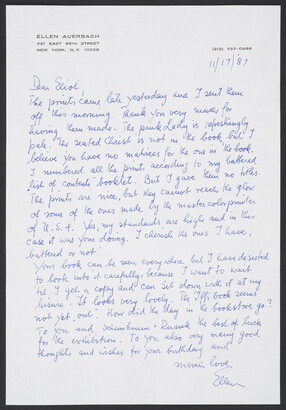 ELLEN AUERBACH
231 EAST 85TH STREET
NEW YORK, N.Y. 10028
(212) 737-0688
11/17/87
Dear Eliot,
The prints came late yesterday and I sent them
off this morning. Thank you very much for
having them made. The pink Lady is refreshingly
pale. The seated Christ is not in the book but I
believe you have no matrices for the one in the book.
I numbered all the prints according to my battered
list of contents booklet. But I gave them no titles.
The prints are nice, but they cannot reach the glow
of some of the ones made by the master color printer
of U.S.A. Yes my standards are high and in this
case it was your doing. I cherish the ones I have,
battered or not.
Your book can be seen everywhere but I have desisted
to look into it carefully, because I want to wait
'til I get a copy and can sit down with it at my
leisure. It looks very lovely. The book seems
not yet out. How did the day in the bookstore go?
To you and the best of luck
for the exhibition. To you also very many good
thoughts and wishes for your birthday and
much love,
Ellen